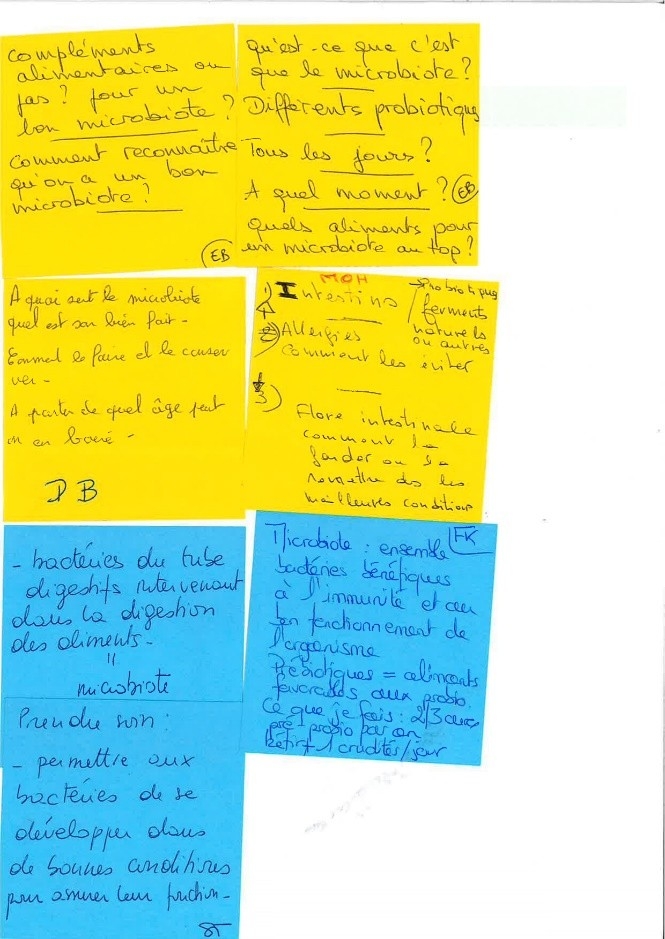 compléments
alimentaires ou
pas ? pour un
bon microbiote ?
Comment reconnaître
qu'on a un bon
microbiote ?
EB
qu'est-ce que c'est
que le microbiote ?
Différents probiotique
Tous les jours ?
A quel moment ? EB
quels aliments pour
un microbiote au top ?
A quoi sert le microbiote
quel est son bien fait -
Comment le faire et le conser
ver -
A partir de quel âge peut
on en
DB
MOH
1) Intestins
→ Probiotiques
ferments
naturels
ou autres
2) Allergies
Comment les éviter
3)
Flore intestinale
comment la
garder ou la
remettre ds les
meilleures conditions
- bactéries du tube
digestifs intervenant
dans la digestion
des aliments -
=
microbiote
Prendre soin :
- permettre aux
bactéries de se
développer dans
de bonnes conditions
pour assurer leur fonction -
FK
Microbiote : ensemble
bactéries bénéfiques
à l'immunité et au
bon fonctionnement de
l'organisme
Prébiotiques = aliments
favorables aux probio.
Ce que je fais : 2/3 cures
pré probio par an
Kéfir + 1 crudités/jour